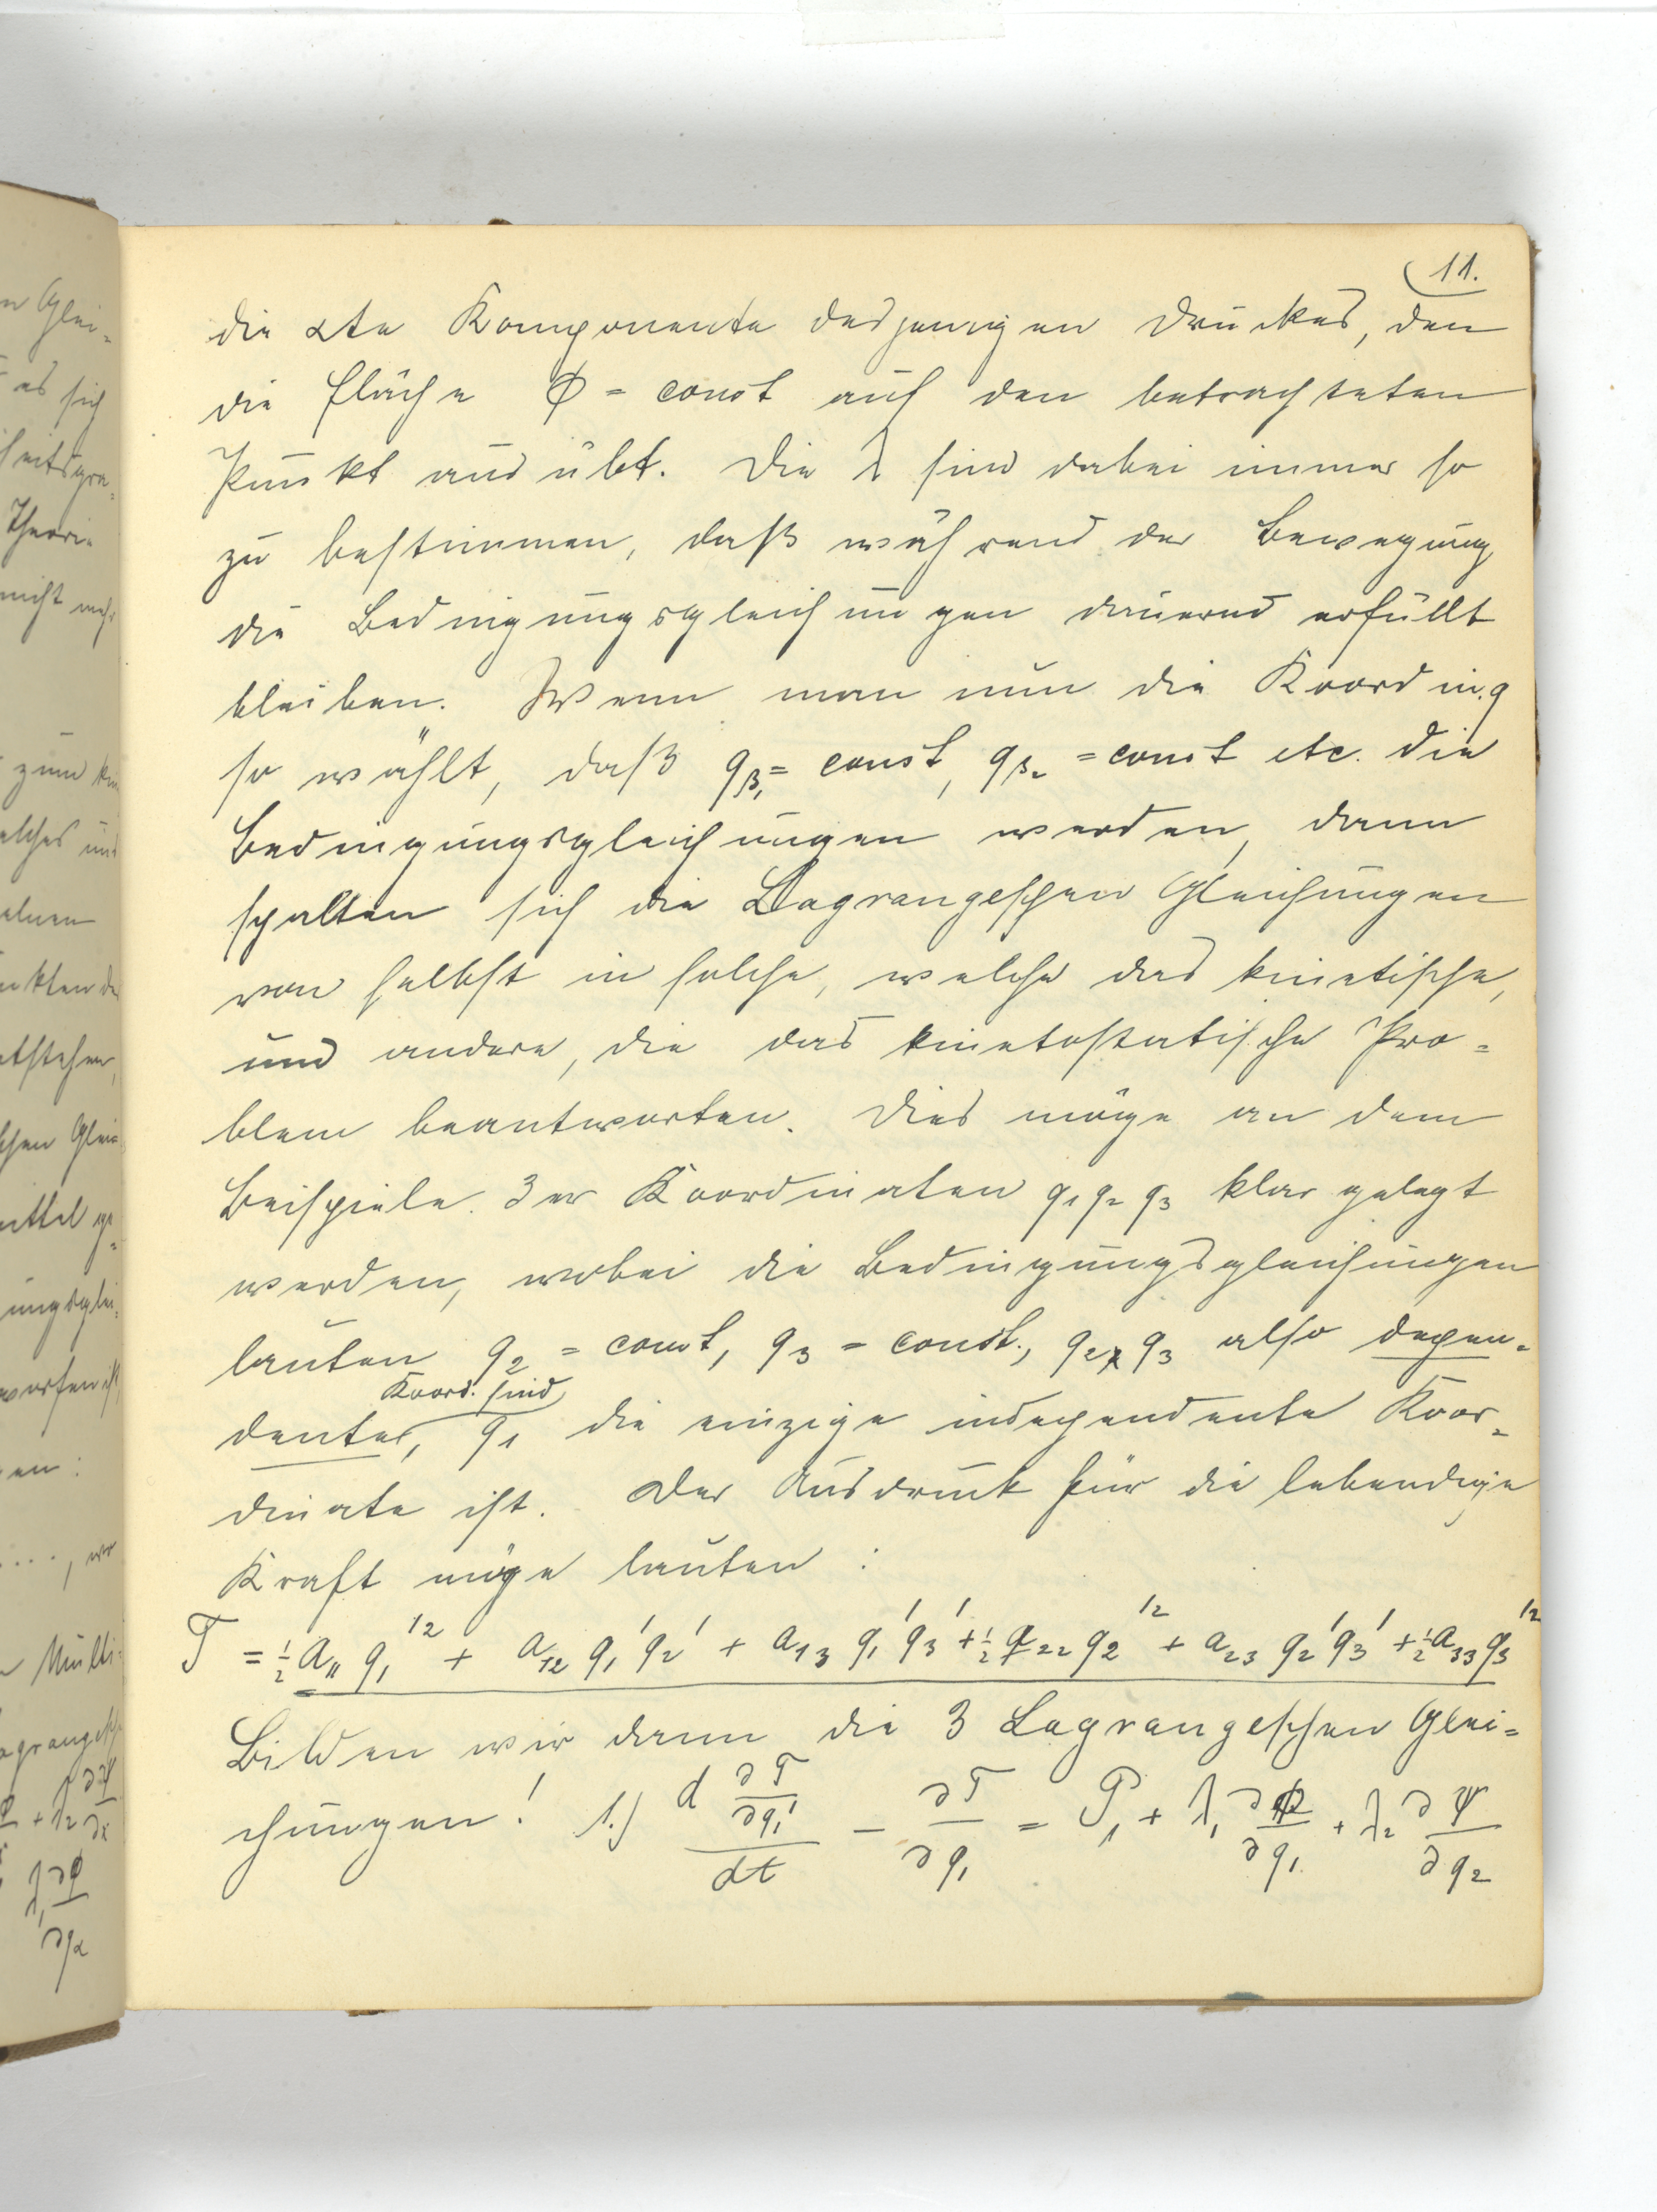 11.
die αte Komponente desjenigen Druckes, den
die Fläche Φ = const auf den betrachteten
Punkt ausübt. Die λ sind dabei immer so
zu bestimmen, daß während der Bewegung
die Bedingungsgleichungen dauernd erfüllt
bleiben. Wenn man nun die Koordin. q
so wählt, daß qβ₁ = const, qβ₂ = const etc. die
Bedingungsgleichungen werden, dann
spalten sich die Lagrangeschen Gleichungen
von selbst in solche, welche das kinetische,
und andere, die das kinetostatische Pro=
blem beantworten. Dies möge an dem
Beispiele 3er Koordinaten q₁ q₂ q₃ klar gelegt
werden, wobei die Bedingungsgleichungen
lauten q₂ = const, q₃ = const., q₂, q₃ also depen=
Koord. sind
dente, q₁ die einzige independente Koor=
dinate ist. Der Ausdruck für die lebendige
Kraft möge lauten :
T = ½ a₁₁ q₁'² + a₁₂ q₁' q₂' + a₁₃ q₁' q₃' + ½ a₂₂ q₂'² + a₂₃ q₂' q₃' + ½ a₃₃ q₃'²
Bilden wir dann die 3 Lagrangeschen Glei=
chungen! 1.) d ∂T/∂q₁' / dt − ∂T/∂q₁ = P₁ + λ₁ ∂Φ/∂q₁ + λ₂ ∂Ψ/∂q₂